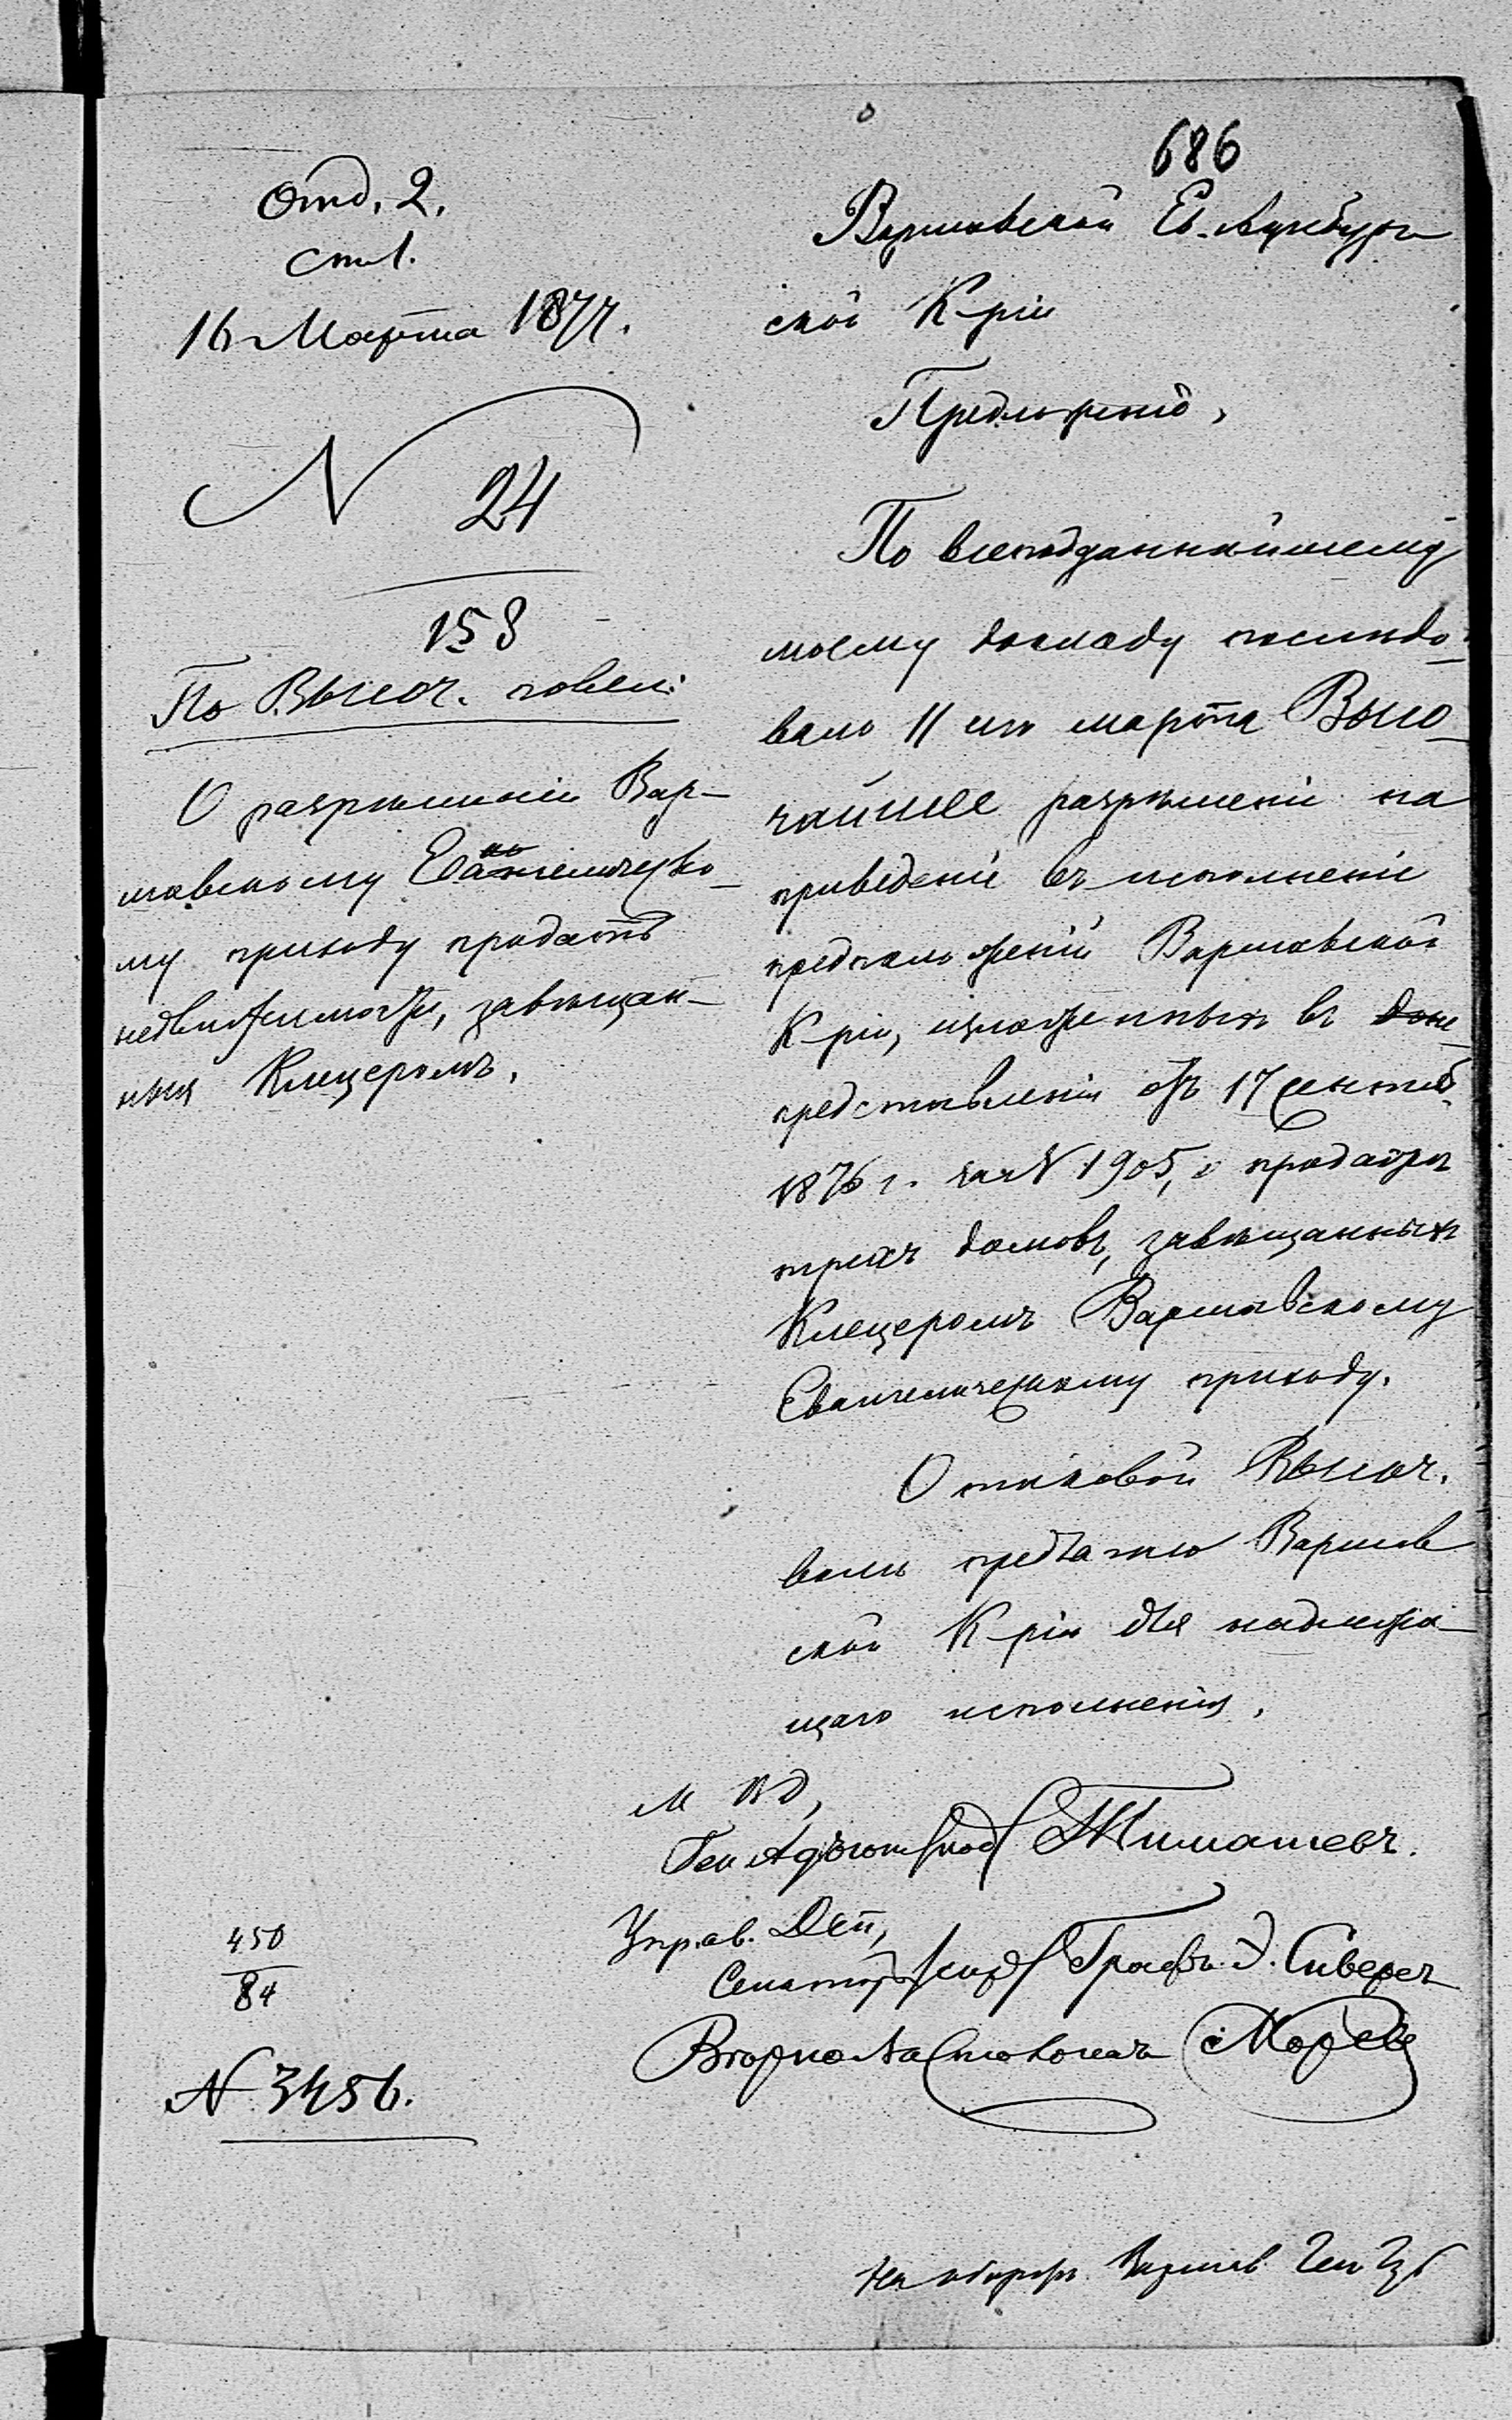 686
Отд. 2.
ст. 1.
16 Марта 1877.
N 24
158
По Высоч. повел:
О разрѣшеніи Вар-
шавскому Евангелическо-
му приходу продать
недвижимости, завѣщан-
ныя Клецеромъ.
450
84
N 3456.
Варшавской Ев. Аугсбург
ской К-ріи
Предложеніе.
По всеподданнѣйшему
моему докладу послѣдо-
вало 11 сего марта Высо-
чайшее разрѣшеніе на
приведеніе въ исполненіе
предположеній Варшавской
К-ріи, изложенныхъ въ доне
представленіи отъ 17 сентяб.
1876 г. за N 1905, о продажѣ
трехъ домовъ, завѣщанныхъ
Клецеромъ Варшавскому
Евангелическому приходу.
О таковой Высоч.
воли предлагаю Варшав
ской К-ріи для надлежа-
щаго исполненія.
М ВД,
Ген Адъют. под. Тимашевъ.
Управ. Деп,
Сенаторъ подп. Графъ Э. Сиверсъ
Вѣрно: Морев
На оборотѣ Варшав. Ген Губ